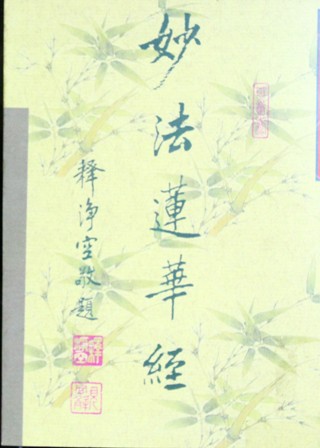 妙法蓮華經
释净空敬題